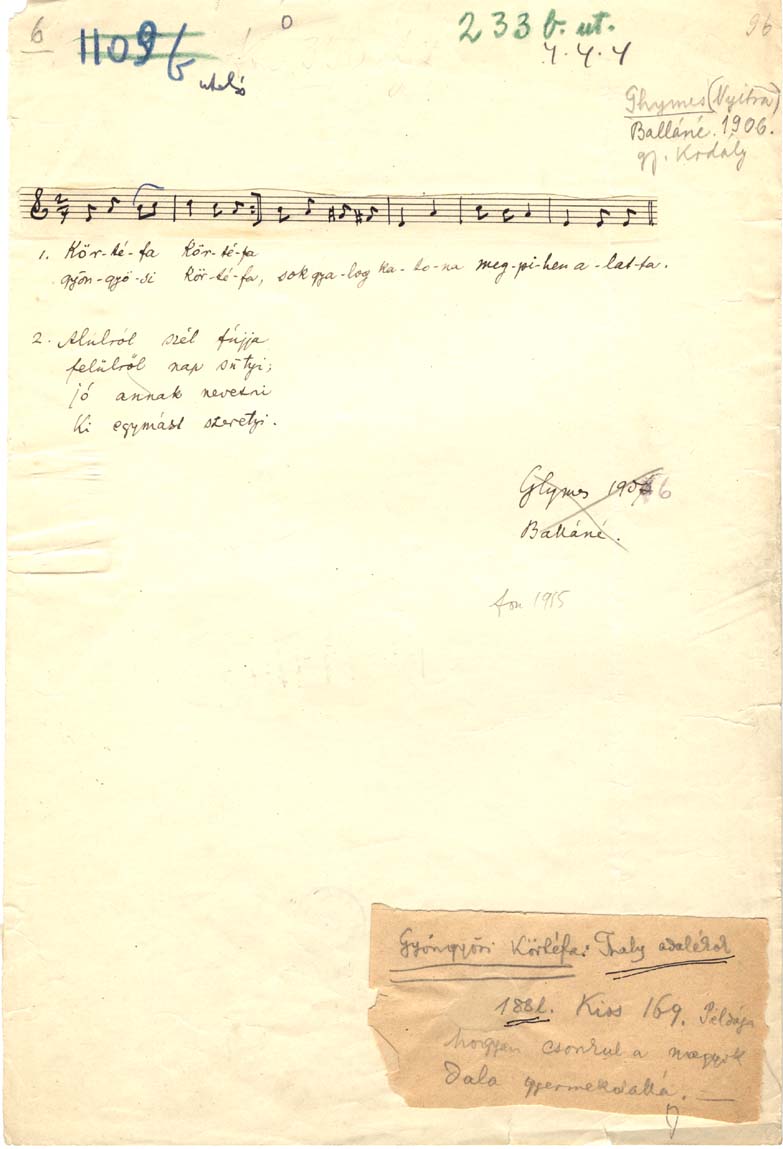 6
0
233 b. ut.
96
1109 b
utolsó
4.4.4
Ghymes (Nyitra)
Balláné. 1906.
gj. Kodály
1. Kör-té-fa kör-té-fa
gyön-gyö-si kör-té-fa, sok gya-log ka-to-na meg-pi-hen a-lat-ta.
2. Alúlról szél fújja
felülről nap sűtyi;
jó annak nevezni
Ki egymást szeretyi.
Ghymes 1906
Balláné.
fon 1915
Gyöngyösi Körtéfa: Thaly adalékok
188 l. Kiss 169. Példája
hogyan csonkul a nagyok
dala gyermekdallá. —